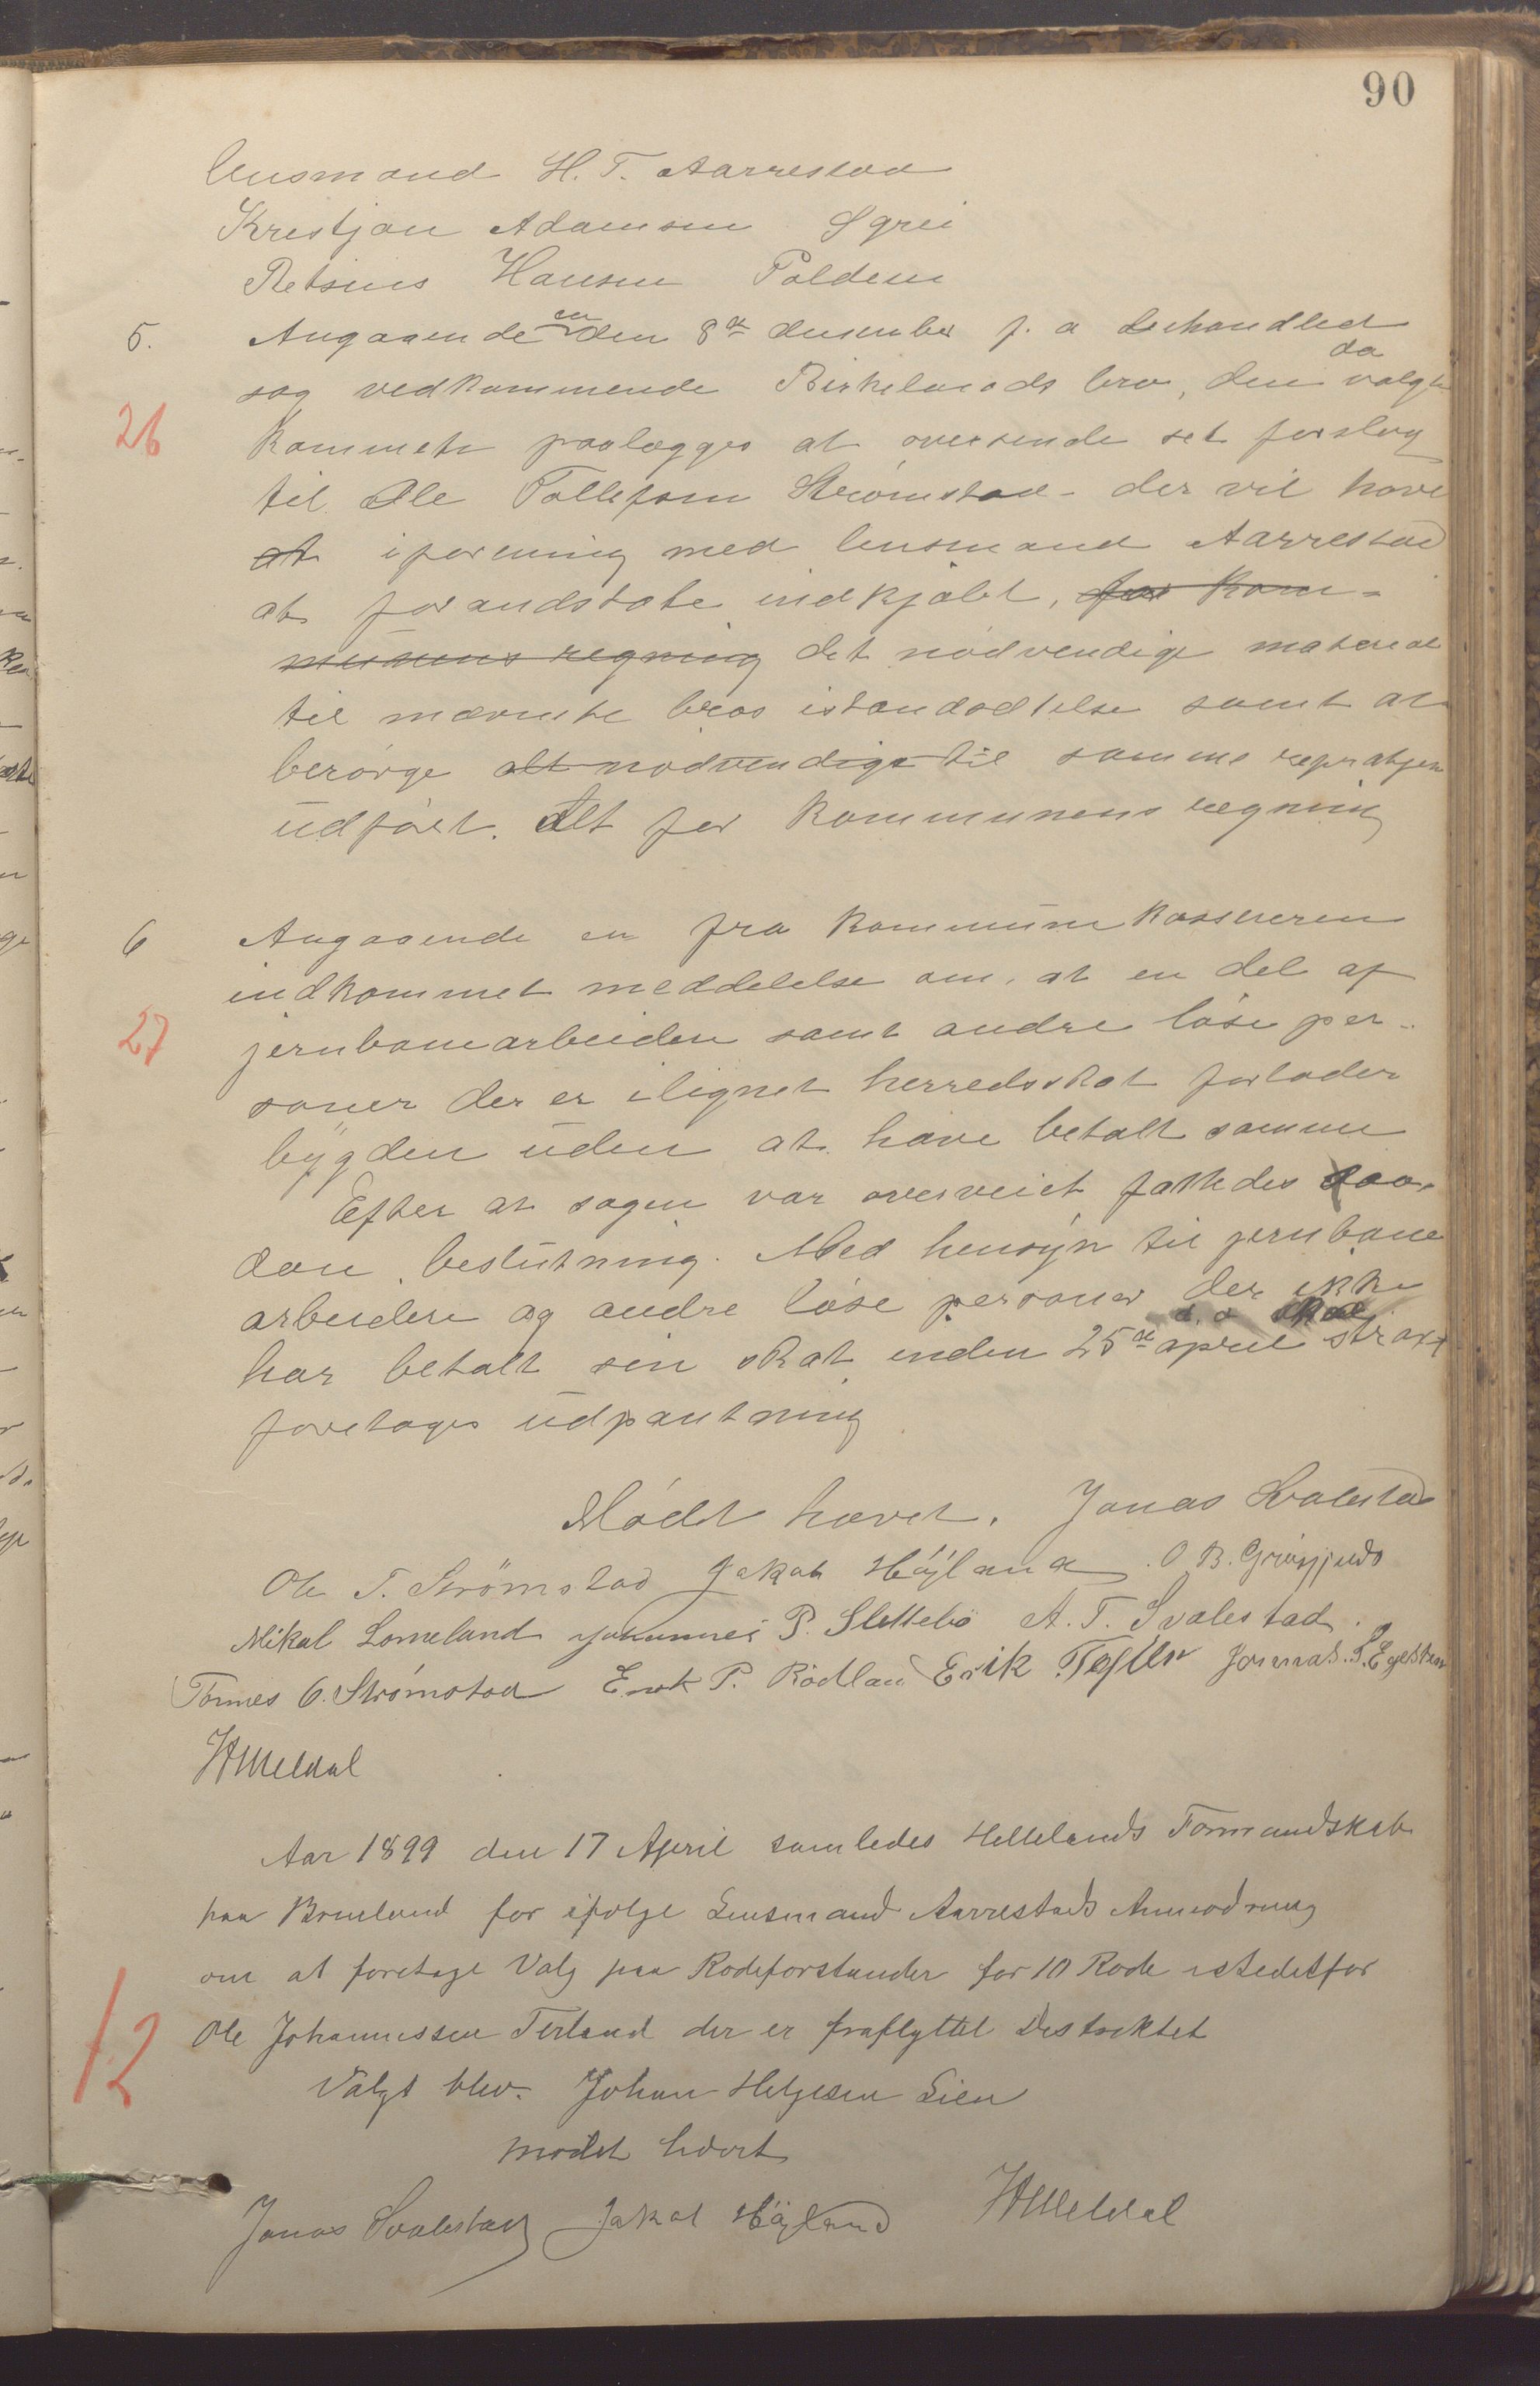 90
Lensmand H. T. Aarrestad
Krestjan Adamsen Egrei
Retsius Hansen Polden
5. Angaaende en den 8de desember f. a behandlet
sag vedkommende Birkelands bro, den da valgte
26
Kommete paalægges at oversende set forslag
til Ole Tollefsen Strømstad - der vil have
at iforening med lensmand Aarrestad
at foranstalte indkjøbt, for kom-
munens regning det nødvendige materiale
til nævnte bros istandsættelse samt at
besørge alt nødvendige til samme repratjon
udført. Alt for kommunens regning
6 Angaaende en fra Kommunekassereren
indkommet meddelelse om, at en del af
27
jernbanearbeidere samt andre løse per-
soner der er ilignet herredsskat forlader
bygden uden at have betalt samme
Efter at sagen var overveiet fattedes saa-
dan beslutning. Med hensyn til jernbane
arbeidere og andre løse personer der ikke
har betalt sin skat inden 25de april d. a skal strax
foretages udpantning
Mødet hævet. Jonas Svalestad
Ole T. Strømstad Jakob Höyland O. B.
Mikal Lomeland Johannes P. Slettebø A. T. Svalestad
Tønnes O. Strømstad Erik P. Rødland Erik Jonas S. Egelstad
H Meldal
Aar 1899 den 17 April samledes Hellelands Formandskab
paa Bruland for ifølge Lensmand Aarrestads Anmodning
om at foretage Valg paa Rodeforstander for 10 Rode istedetfor
12
Ole Johannessen Terland der er fraflyttet Destriktet
Valgt blev. Johan Helgesen Lien
mødet hævet
Jonas Svalestad Jakob Höyland H Meldal